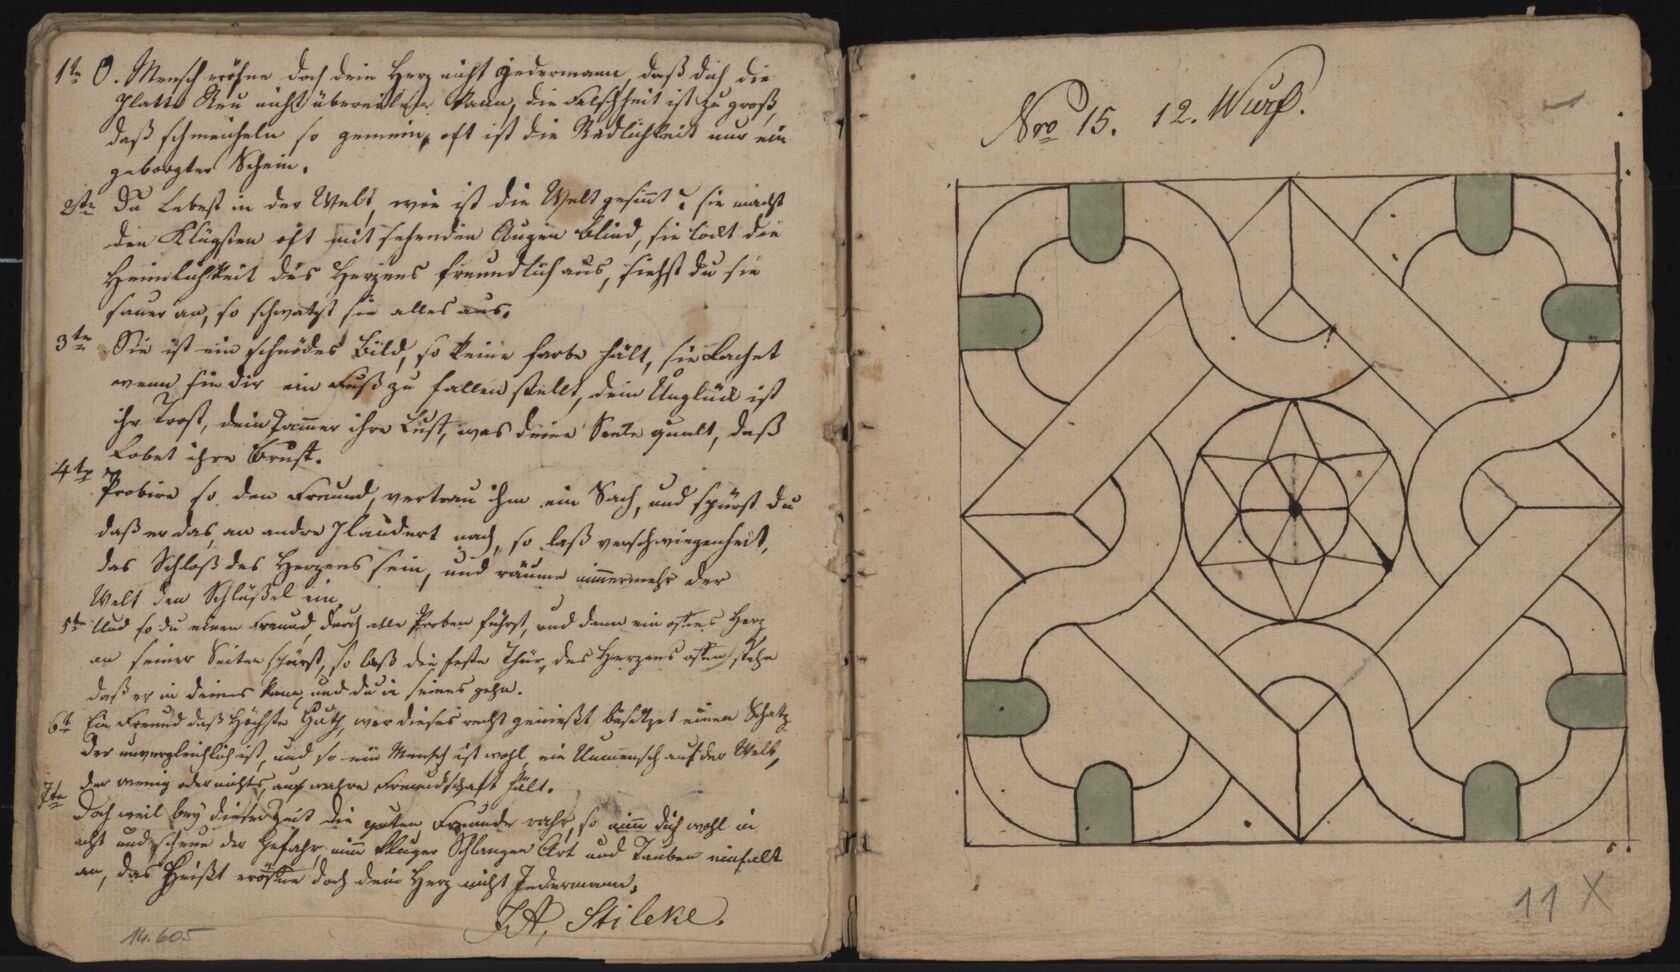 1te O. Mensch eröfne doch dein Herz nicht jedermann, daß dich die
platte Reu nicht übereilen kann, die Falschheit ist zu groß,
daß schmeicheln so gemein, oft ist die Redlichkeit nur ein
geborgter Schein.
2te Du Lebest in der Welt, wie ist die Welt gesinnt? sie macht
den Klügsten oft mit sehenden Augen blind, sie lockt die
Heimlichkeit des Herzens freundlich aus, siehst du sie
sauer an, so schwatzt sie alles aus.
3te Sie ist ein schnödes Bild, so keine farbe hält, sie Lachet
wenn sie dir ein Fuß zu fallen stellt, dein Unglück ist
ihr Trost, dein Jammer ihre Lust, was deine Seele qualt, daß
Lobet ihre Brust.
4te Probire so den Freund, vertrau ihm ein Sach, und spürst du
daß er das, an andre plaudert nach, so laß verschwiegenheit,
das Schloß des Herzens sein, und räume nimmermehr der
Welt den Schlüßel ein.
5te Und so du einen Freund, durch alle Proben führst, und dann ein ofnes Herz
an seiner Seiten spürst, so laß die feste Thür, des Herzens offen stehn
daß er in deines kann, und du in seines gehn.
6te Ein Freund daß Höchste Guth, wer dieses recht genießt besitzet einen Schatz
der unvergleichlich ist, und so ein Mensch ist wohl, ein Unmensch auf der Welt,
der wenig oder nichts, auf wahre Freundschaft hält.
7te Doch weil bey dieser Zeit die guten Freunde rahr, so nimm dich wohl in
acht und scheue der Gefahr, nimm kluger Schlangen Art und Tauben einfalt
an, das Heißt eröffne doch dein Herz nicht Jedermann.
JA. Stileke.
14.605
Nro 15. 12. Wurf.
11 X